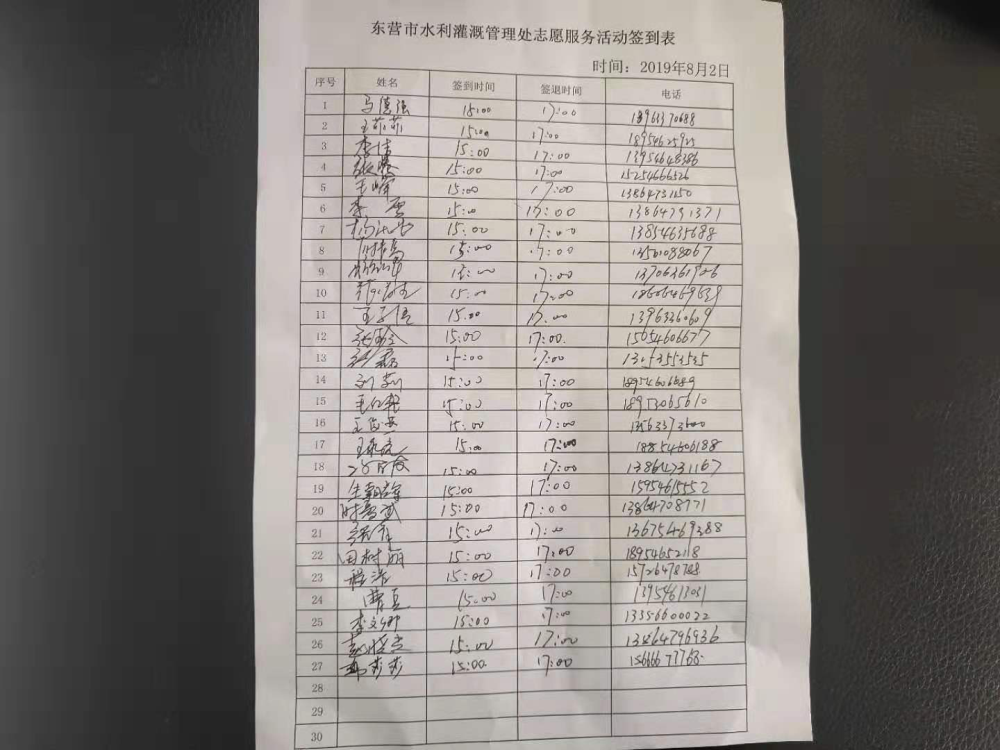 东营市水利灌溉管理处志愿服务活动签到表
时间：2019年8月2日
序号 姓名 签到时间 签退时间 电话
1 马德强 15:00 17:00 18963370688
2 王菲菲 15:00 17:00 18954625925
3 李倩 15:00 17:00 13954648386
4 15:00 17:00 15254666526
5 王峰 15:00 17:00 13864731150
6 李 15:00 17:00 13864791371
7 15:00 17:00 13854635688
8 15:00 17:00 13561088067
9 15:00 17:00 13706361926
10 15:00 17:00 18606469639
11 15:00 17:00 13963360609
12 15:00 17:00. 15054606677
13 15:00 17:00
14 刘莉 15:00 17:00 18954606689
15 15:00 17:00 18953065610
16 15:00 17:00 13563373600
17 15:00 17:00 18854606188
18 15:00 17:00 13864731167
19 15:00 17:00 15954615552
20 15:00 17:00 13864708771
21 15:00 17:00 13675469388
22 田树丽 15:00 17:00 18954652118
23 程浩 15:00 17:00 15726478788
24 曹真 15:00 17:00 13954613051
25 李文卿 15:00 17:00 13356600022
26 赵晓杰 15:00 17:00 13864796936
27 韩莎莎 15:00 17:00 15666677768
28
29
30